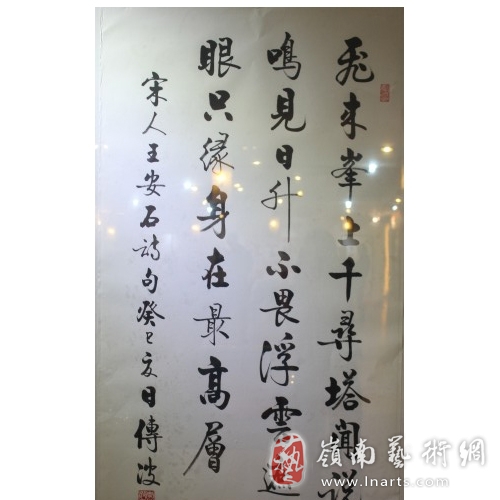 飛来峯上千尋塔聞説
鳴見日升不畏浮雲遮
眼只緣身在最高層
宋人王安石詩句癸巳夏日傳波
藝
嶺南藝術網
www.lnarts.com